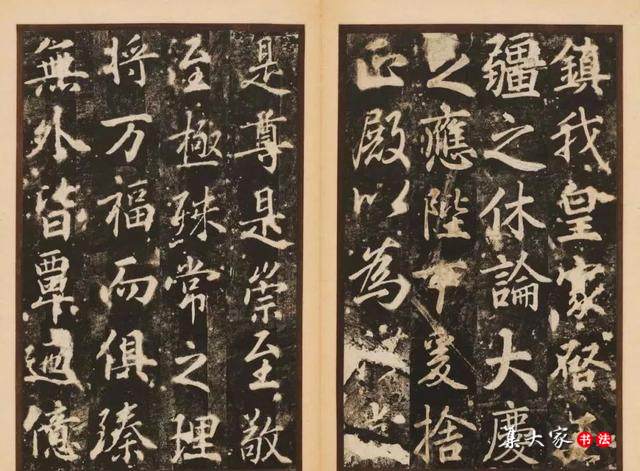 鎮我皇家啓
疆之休論大慶
之應陛下爰捨
正殿以為
是尊是崇至敬
至極殊常之理
将万福而俱臻
無外皆覃億
集大家 书法